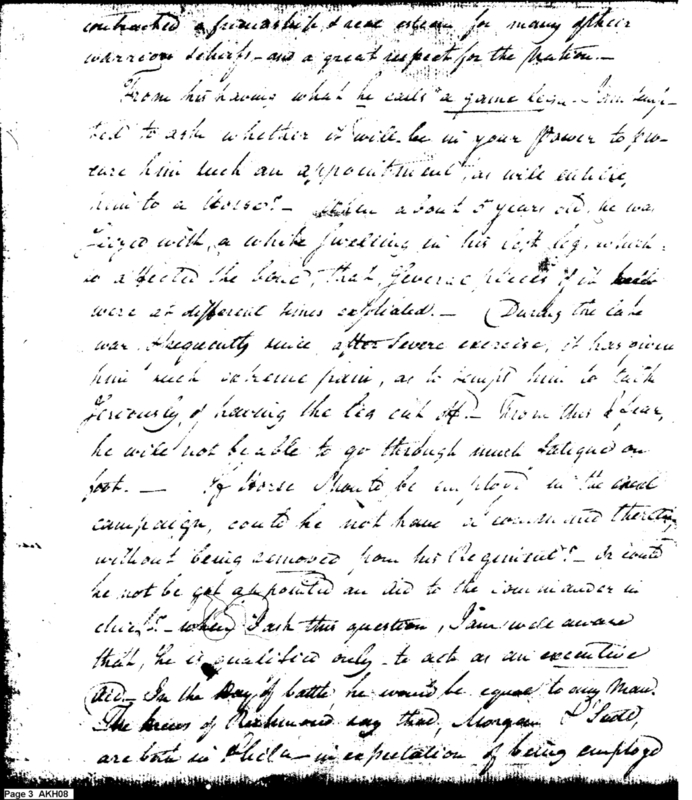 contracted a friendship & real esteem for many of their
warriors & chiefs – and a great respect for the Nation. –
From his having what he calls "a game leg" I am temp-
ted to ask whether it will be in your Power to pro-
cure him such an appointment, as will entitle
him to a Horse? – When about 5 years old, he was
Seized with, a white Swelling in his left leg, which
so affected the bone, that Several pieces of it
were at different times exfoliated. – During the late
war & frequently since, after Severe exercise, it has given
him such extreme pain, as to tempt him to talk
Seriously, of having the leg cut off – From this I fear,
he will not be able to go through much fatigue on
foot. – If Horse Should be employd in the
campaign, could he not have a command therein,
without being removed from his Regiment? – or could
he not be got appointed an aid to the commander in
chief? – when I ask this question, I am well aware
that, he is qualified only to act as an executive
aid – In the Day of battle he would be equal to any Man.
The news of Richmond say that, Morgan & Scott,
are both in Phila – in expectation of being employd
Page 3 AKH08